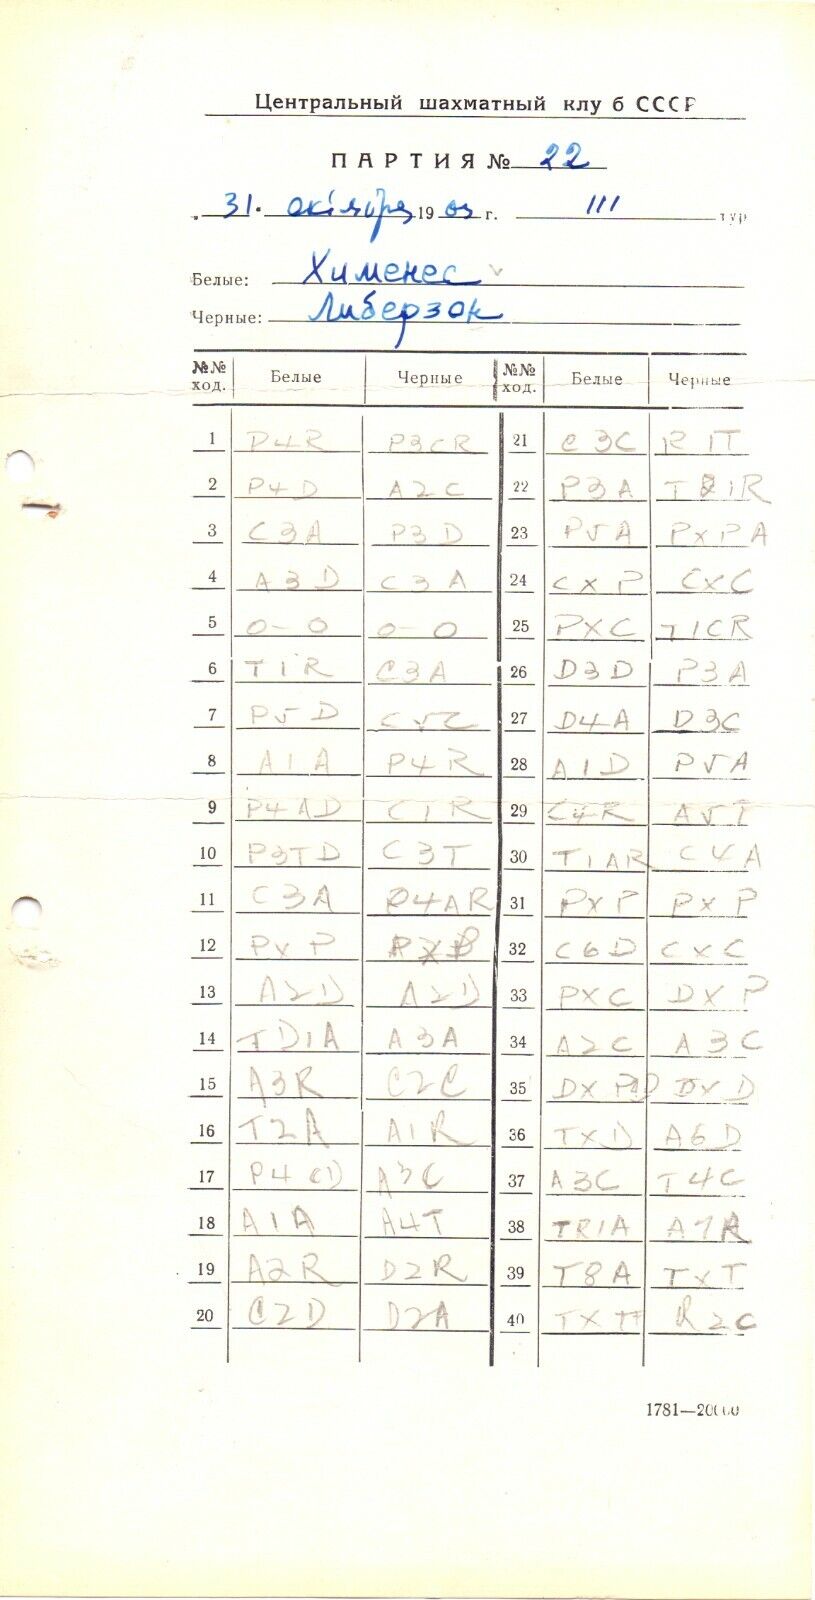 Центральный шахматный клуб СССР
ПАРТИЯ № 22
„ 31. октября 19 г. III тур
Белые: Хименес
Черные: Либерзон
№№ ход. Белые Черные №№ ход. Белые Черные
1 P4R P3CR 21 C3C R1T
2 P4D A2C 22 P3A T1R
3 C3A P3D 23 P5A PxPA
4 A3D C3A 24 CxP CxC
5 0-0 0-0 25 PXC T1CR
6 T1R C3A 26 D3D P3A
7 P5D C5C 27 D4A D3C
8 A1A P4R 28 A1D P5A
9 P4AD C1R 29 C4R A5T
10 P3TD C3T 30 T1AR C4A
11 C3A P4AR 31 PxP PxP
12 PxP PxP 32 C6D CxC
13 A2D A2D 33 PXC DXP
14 TD1A A3A 34 A2C A3C
15 A3R C2C 35 DxP DxD
16 T2A A1R 36 TXD A6D
17 P4CD A3C 37 A3C T4C
18 A1A A4T 38 TR1A A7R
19 A2R D2R 39 T8A TxT
20 C2D D2A 40 TXT R2C
1781—20000